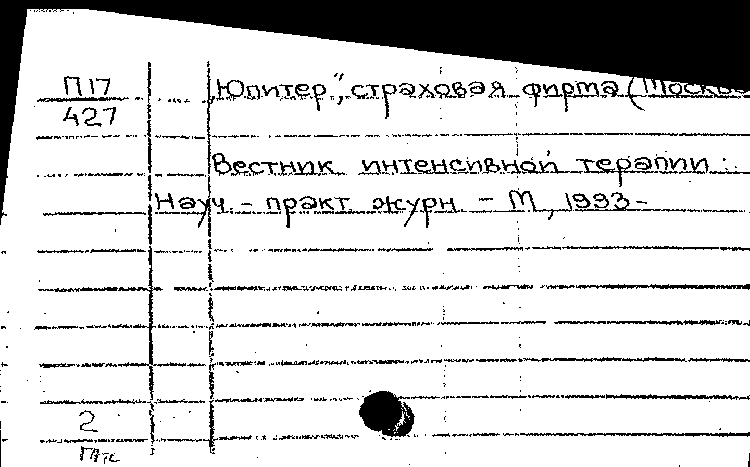 П17
427
„Юпитер", страховая фирма (Москва
Вестник интенсивной терапии:
Науч.- практ журн - М, 1993-
2